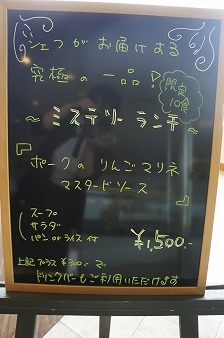 シェフがお届けする
究極の一品!
限定
10食
～ミステリーランチ～
『ポークのりんごマリネ
マスタードソース』
スープ
サラダ
パン or ライス 付
¥1,500.-
上記プラス¥300.-で
ドリンクバーもご利用いただけます